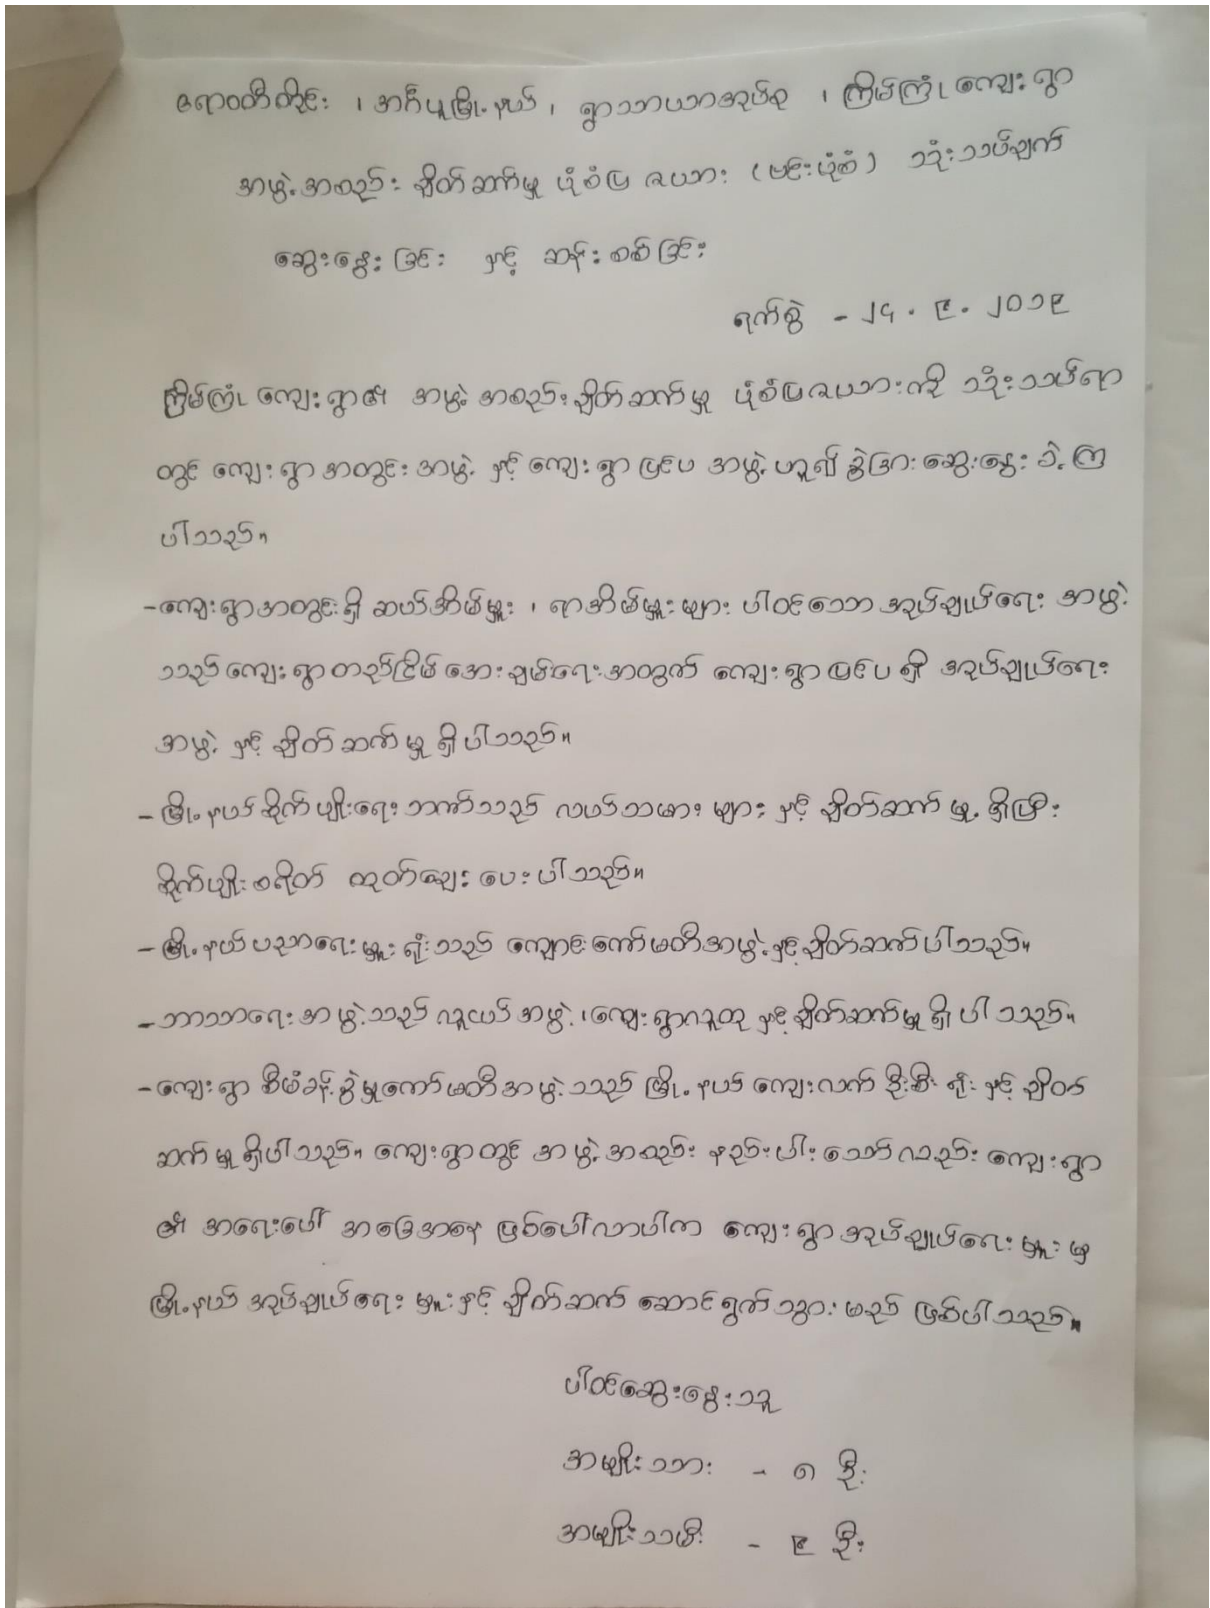 ဧရာဝတီတိုင်း ၊ အင်္ဂပူမြို့နယ် ၊ ရွာသာယာအုပ်စု ၊ ကြိမ်ကြုံ ကျေးရွာ
အဖွဲ့အစည်း ချိတ်ဆက်မှု ပုံစံပြ ဇယား (ဗင်းပုံစံ) သုံးသပ်ချက်
ဆွေးနွေးခြင်း နှင့် ဆန်းစစ်ခြင်း
ရက်စွဲ - ၂၄ . ၉ . ၂၀၁၉
ကြိမ်ကြုံ ကျေးရွာ၏ အဖွဲ့အစည်းချိတ်ဆက်မှု ပုံစံပြဇယားကို သုံးသပ်ရာ
တွင် ကျေးရွာအတွင်းအဖွဲ့ နှင့် ကျေးရွာ ပြင်ပ အဖွဲ့ ဟူ၍ ခွဲခြားဆွေးနွေး ခဲ့ကြ
ပါသည်။
-ကျေးရွာအတွင်းရှိ ဆယ်အိမ်မှူး ၊ ရာအိမ်မှူးများ ပါဝင်သော အုပ်ချုပ်ရေး အဖွဲ့
သည်ကျေးရွာတည်ငြိမ်အေးချမ်းရေးအတွက် ကျေးရွာ ပြင်ပ ရှိ အုပ်ချုပ်ရေး
အဖွဲ့ နှင့် ချိတ်ဆက်မှု ရှိပါသည်။
- မြို့နယ်စိုက်ပျိုးရေး ဘဏ်သည် လယ်သမား များ နှင့် ချိတ်ဆက် မှု ရှိပြီး
စိုက်ပျိုးစရိတ် ထုတ်ချေး ပေးပါသည်။
- မြို့နယ်ပညာရေးမှူးရုံးသည် ကျောင်းကော်မတီအဖွဲ့နှင့်ချိတ်ဆက်ပါသည်။
- ဘာသာရေးအဖွဲ့သည် လူငယ်အဖွဲ့၊ကျေးရွာလူထု နှင့်ချိတ်ဆက်မှုရှိပါသည်။
- ကျေးရွာ စီမံခန့်ခွဲမှုကော်မတီအဖွဲ့သည် မြို့နယ် ကျေးလက် ဦးစီး ရုံး နှင့် ချိတ်
ဆက်မှုရှိပါသည်။ ကျေးရွာတွင် အဖွဲ့အစည်း နည်းပါးသော်လည်း ကျေးရွာ
၏ အရေးပေါ် အခြေအနေ ဖြစ်ပေါ်လာပါက ကျေးရွာ အုပ်ချုပ်ရေး မှူး မှ
မြို့နယ် အုပ်ချုပ်ရေး မှူးနှင့် ချိတ်ဆက် ဆောင်ရွက်သွားမည် ဖြစ်ပါသည်။
ပါဝင်ဆွေးနွေးသူ
အမျိုးသား - ၈ ဦး
အမျိုးသမီး - ၉ ဦး